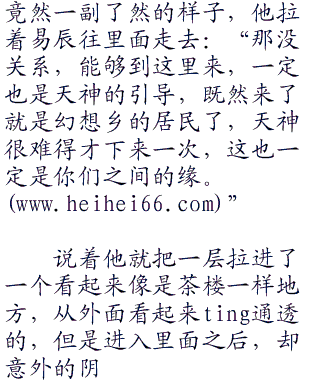 竟然一副了然的样子，他拉
着易辰往里面走去：“那没
关系，能够到这里来，一定
也是天神的引导，既然来了
就是幻想乡的居民了，天神
很难得才下来一次，这也一
定是你们之间的缘。
(www.heihei66.com)”
说着他就把一层拉进了
一个看起来像是茶楼一样地
方，从外面看起来ting通透
的，但是进入里面之后，却
意外的阴